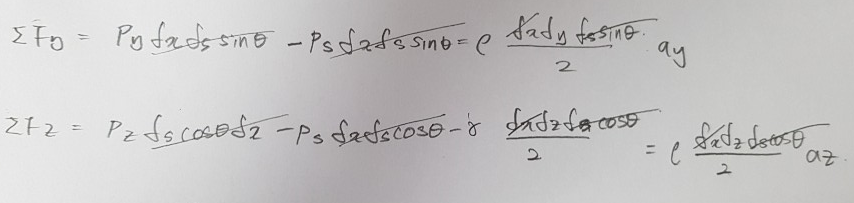 ΣFy = Py δx δs sinθ - Ps δx δs sinθ = ρ δx δy δs sinθ / 2 ay
ΣFz = Pz δs cosθ δx - Ps δx δs cosθ - γ δx δz δs cosθ / 2 = ρ δx δz δs cosθ / 2 az